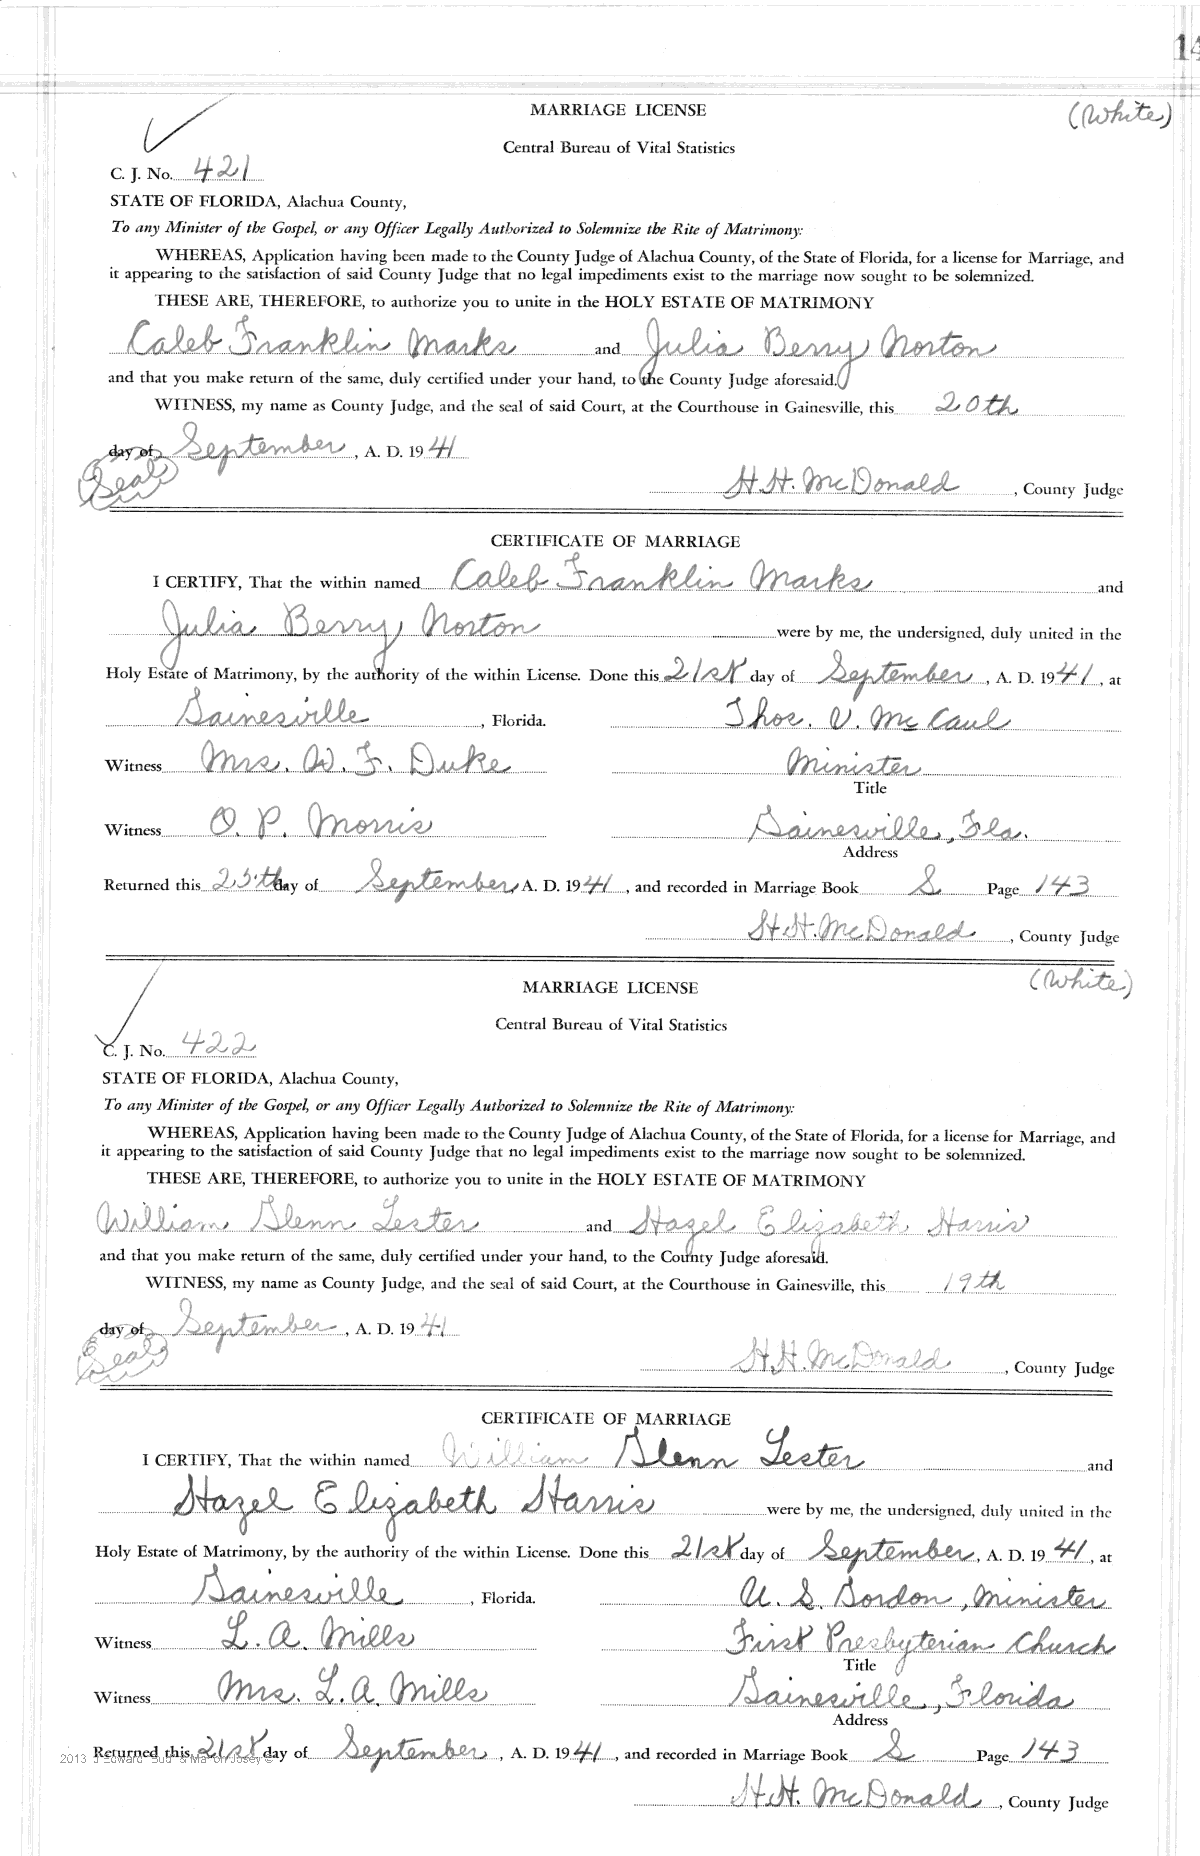 14
MARRIAGE LICENSE
(White)
Central Bureau of Vital Statistics
C. J. No. 421
STATE OF FLORIDA, Alachua County,
To any Minister of the Gospel, or any Officer Legally Authorized to Solemnize the Rite of Matrimony:
WHEREAS, Application having been made to the County Judge of Alachua County, of the State of Florida, for a license for Marriage, and
it appearing to the satisfaction of said County Judge that no legal impediments exist to the marriage now sought to be solemnized.
THESE ARE, THEREFORE, to authorize you to unite in the HOLY ESTATE OF MATRIMONY
Caleb Franklin Marks and Julia Berry Norton
and that you make return of the same, duly certified under your hand, to the County Judge aforesaid.
WITNESS, my name as County Judge, and the seal of said Court, at the Courthouse in Gainesville, this 20th
day of September, A. D. 19 41
(Seal)
H. H. McDonald, County Judge
CERTIFICATE OF MARRIAGE
I CERTIFY, That the within named Caleb Franklin Marks and
Julia Berry Norton were by me, the undersigned, duly united in the
Holy Estate of Matrimony, by the authority of the within License. Done this 21st day of September, A. D. 1941, at
Gainesville, Florida. Thos. V. McCaul
Witness Mrs. W. F. Duke Minister
Title
Witness O. P. Morris Gainesville, Fla.
Address
Returned this 25th day of September A. D. 1941, and recorded in Marriage Book S Page 143
H. H. McDonald, County Judge
MARRIAGE LICENSE
(White)
Central Bureau of Vital Statistics
C. J. No. 422
STATE OF FLORIDA, Alachua County,
To any Minister of the Gospel, or any Officer Legally Authorized to Solemnize the Rite of Matrimony:
WHEREAS, Application having been made to the County Judge of Alachua County, of the State of Florida, for a license for Marriage, and
it appearing to the satisfaction of said County Judge that no legal impediments exist to the marriage now sought to be solemnized.
THESE ARE, THEREFORE, to authorize you to unite in the HOLY ESTATE OF MATRIMONY
William Glenn Lester and Hazel Elizabeth Harris
and that you make return of the same, duly certified under your hand, to the County Judge aforesaid.
WITNESS, my name as County Judge, and the seal of said Court, at the Courthouse in Gainesville, this 19th
day of September, A. D. 19 41
(Seal)
H. H. McDonald, County Judge
CERTIFICATE OF MARRIAGE
I CERTIFY, That the within named William Glenn Lester and
Hazel Elizabeth Harris were by me, the undersigned, duly united in the
Holy Estate of Matrimony, by the authority of the within License. Done this 21st day of September, A. D. 19 41, at
Gainesville, Florida. U. S. Gordon, Minister
Witness L. A. Mills First Presbyterian Church
Title
Witness Mrs. L. A. Mills Gainesville, Florida
Address
Returned this 21st day of September, A. D. 1941, and recorded in Marriage Book S Page 143
2013 J Edward
H. H. McDonald, County Judge